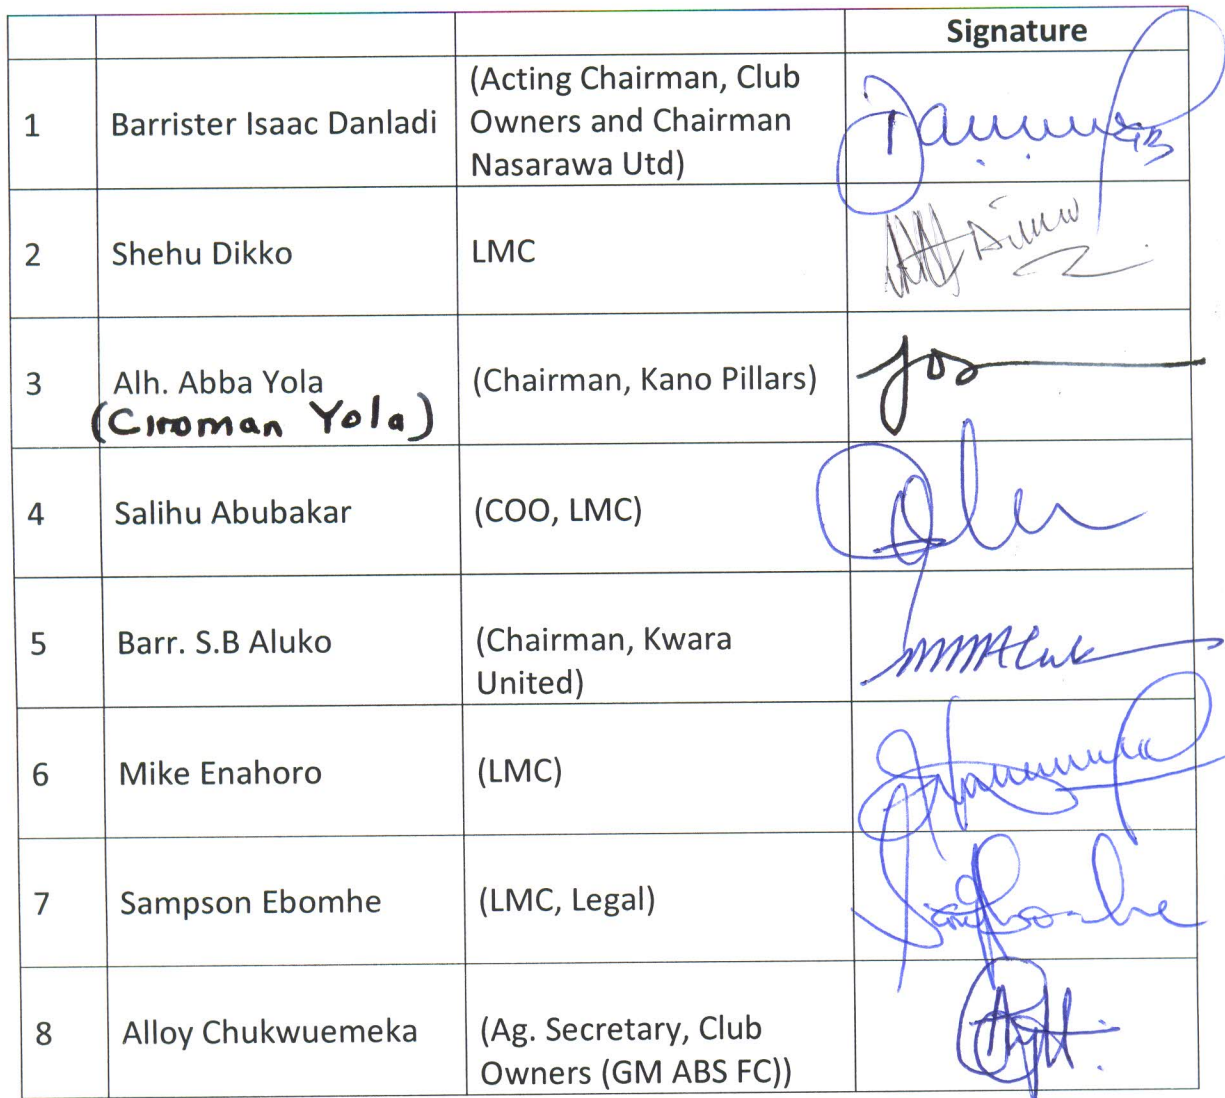 Signature
1 Barrister Isaac Danladi (Acting Chairman, Club
Owners and Chairman
Nasarawa Utd)
2 Shehu Dikko LMC
3 Alh. Abba Yola (Chairman, Kano Pillars)
(Ciroman Yola)
4 Salihu Abubakar (COO, LMC)
5 Barr. S.B Aluko (Chairman, Kwara
United)
6 Mike Enahoro (LMC)
7 Sampson Ebomhe (LMC, Legal)
8 Alloy Chukwuemeka (Ag. Secretary, Club
Owners (GM ABS FC))